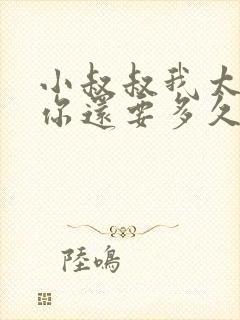 小叔叔我大
你還要多久
陸鳴